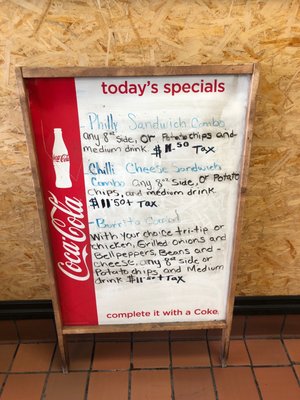 today's specials
- Philly Sandwich Combo
any 8oz Side, Or Potato chips and
medium drink $11.50 + Tax
- Chilli Cheese Sandwich
Combo any 8oz Side, Or Potato
Chips, and medium drink
$11.50 + Tax
- Burrito
With your choice tri-tip or
chicken, Grilled Onions and
Bellpeppers, Beans and
cheese. any 8oz side or
Potato chips and Medium
drink $11.50 + Tax
complete it with a Coke.
Coca-Cola
Coca-Cola